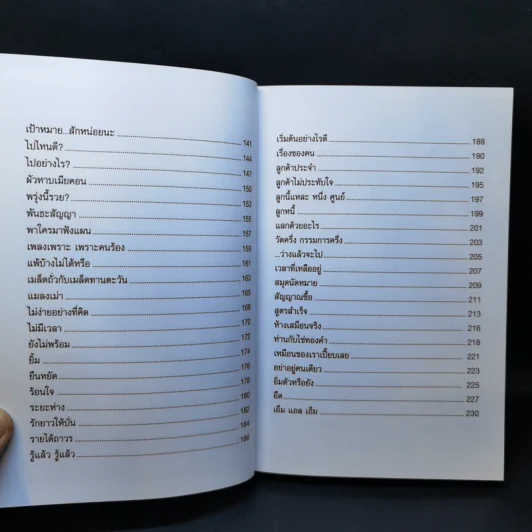 เป้าหมาย...สักหน่อยนะ 141
ไปไหนดี? 144
ไปอย่างไร? 147
ผัวหาบเมียคอน 150
พรุ่งนี้รวย? 153
พันธะสัญญา 155
พาใครมาฟังแผน 157
เพลงเพราะ เพราะคนร้อง 159
แพ้บ้างไม่ได้หรือ 161
เมล็ดถั่วกับเมล็ดทานตะวัน 163
แมลงเม่า 165
ไม่ง่ายอย่างที่คิด 168
ไม่มีเวลา 170
ยังไม่พร้อม 172
ยิ้ม 174
ยืนหยัด 176
ร้อนใจ 178
ระยะห่าง 180
รักยาวให้บั่น 182
รายได้ถาวร 184
รู้แล้ว รู้แล้ว 186
เริ่มต้นอย่างไรดี 188
เรื่องของคน 190
ลูกค้าประจำ 192
ลูกค้าไม่ประทับใจ 195
ลูกนี้แหละ หนึ่ง ศูนย์ 197
ลูกหนี้ 199
แลกด้วยอะไร 201
วัดครึ่ง กรรมการครึ่ง 203
...ว่างแล้วจะไป 205
เวลาที่เหลืออยู่ 207
สมุดนัดหมาย 209
สัญญาณซื้อ 211
สูตรสำเร็จ 213
ห้างเสมือนจริง 216
ห่านกับไข่ทองคำ 218
เหมือนของเราเปี๊ยบเลย 221
อย่าอยู่คนเดียว 223
อิ่มตัวหรือยัง 225
อึด 227
เอ็ม แอล เอ็ม 230